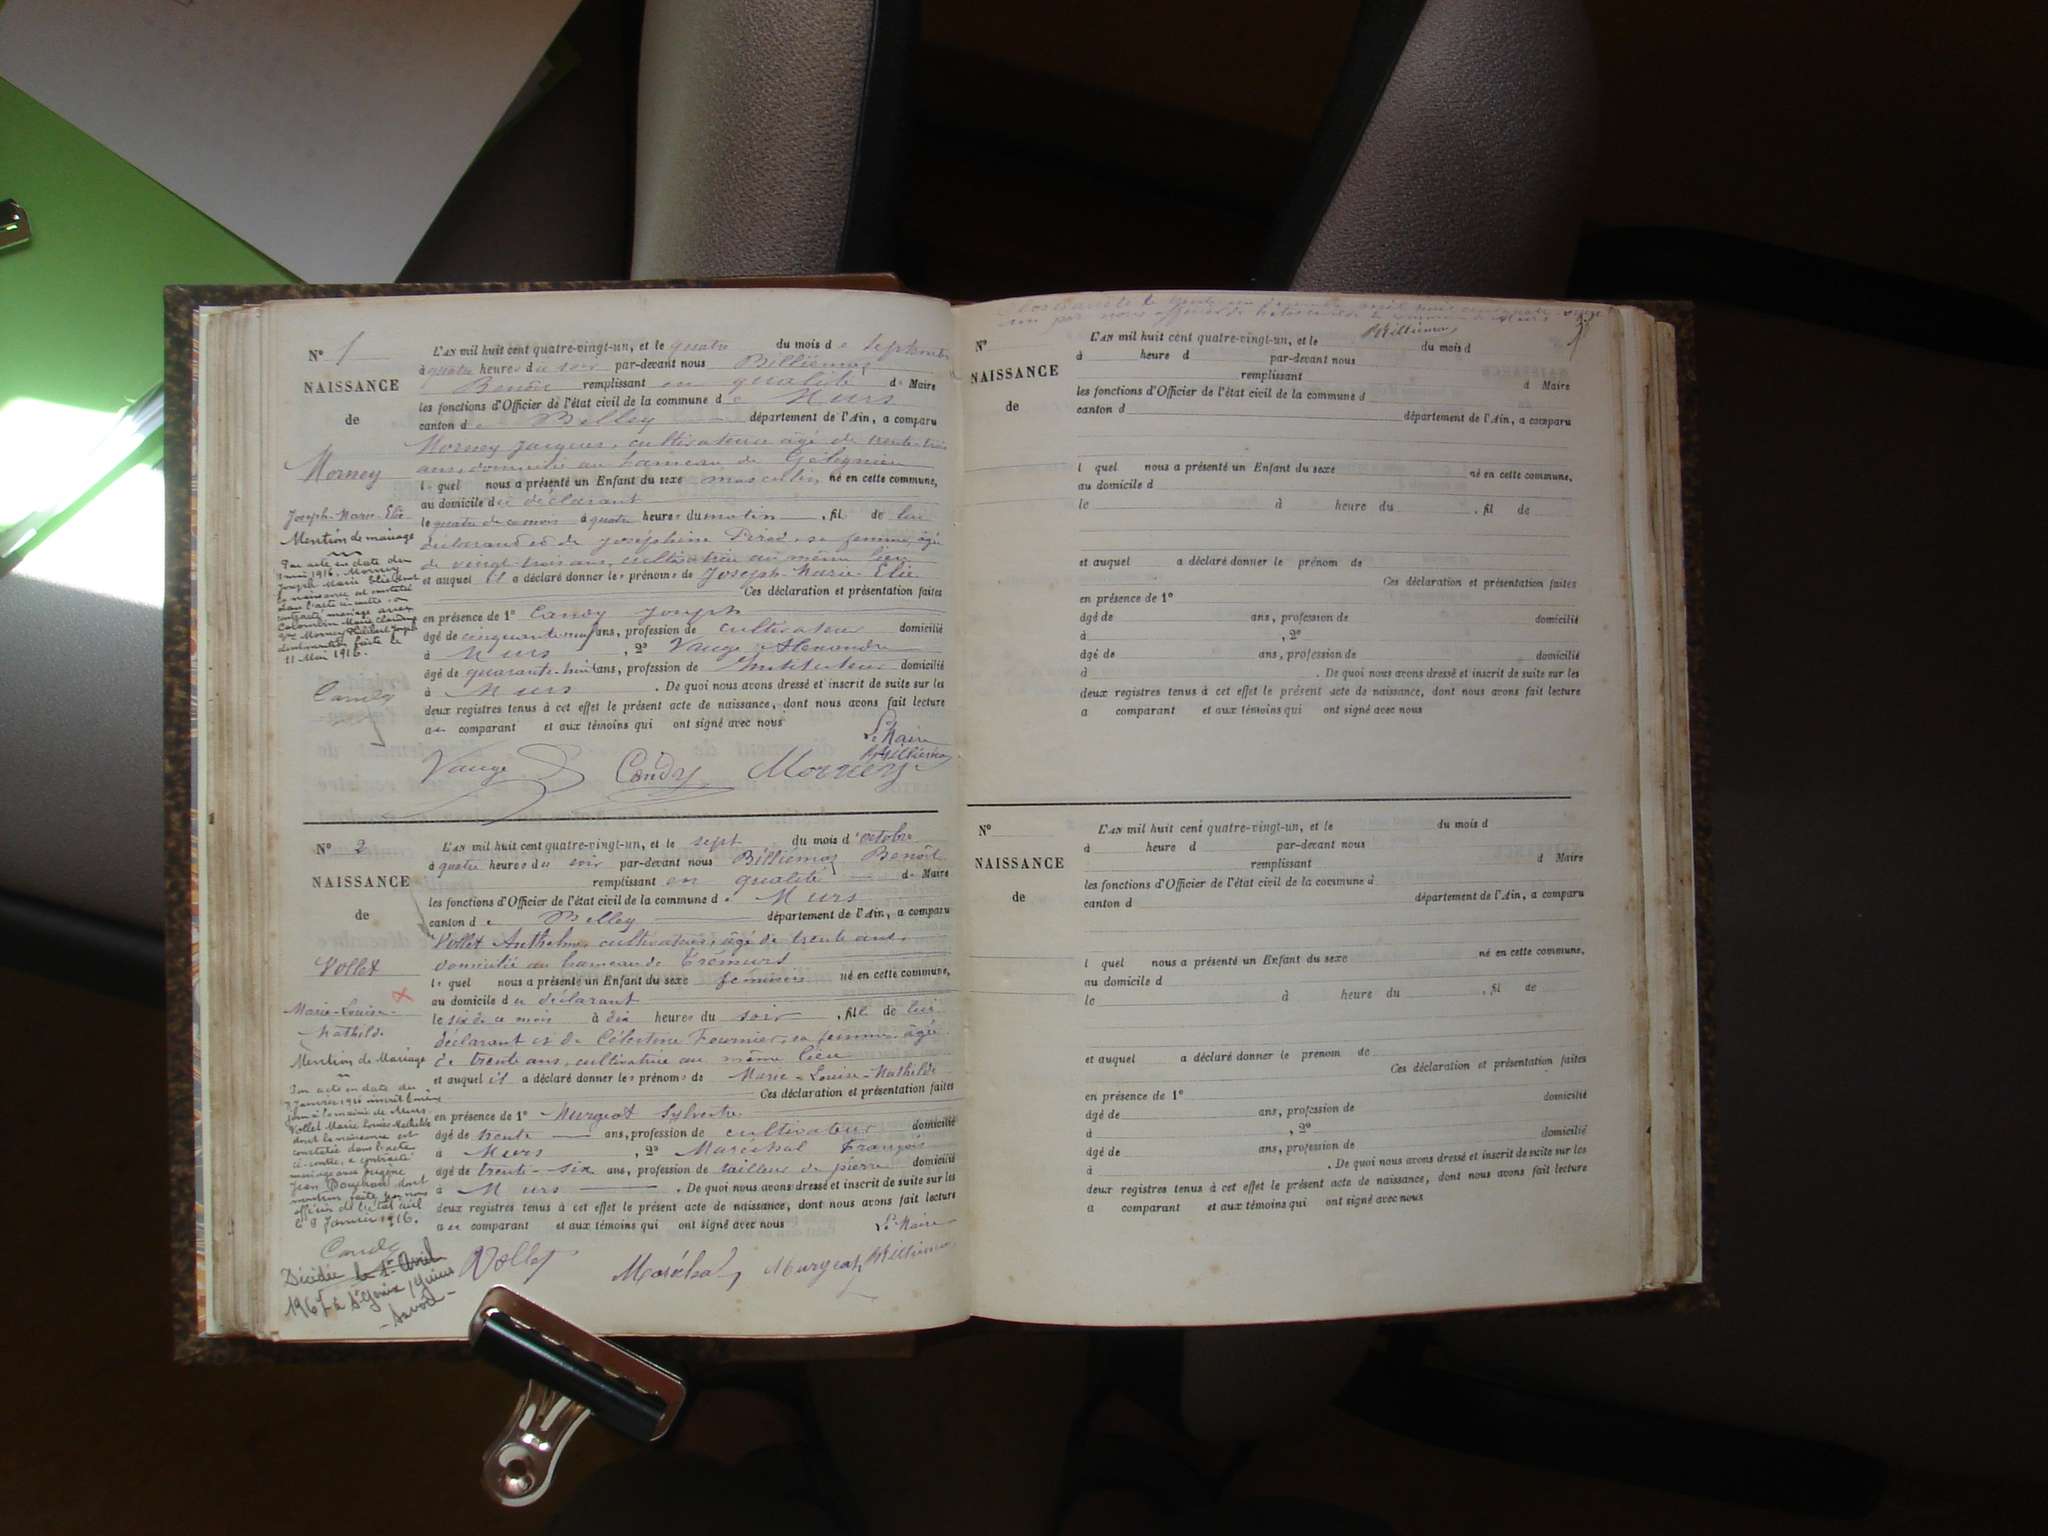 Nº 1
NAISSANCE
de
Morney
Joseph-Marie-Elie
Mention de mariage
Par acte en date du
1916, Morney
Joseph Marie Elie dont
la naissance est constatée
dans l'acte ci-contre, a
contracté mariage avec
Colombin Marie Claudine
Vve Morney Philibert Joseph
11 Mai 1916.
Candy
L'AN mil huit cent quatre-vingt-un, et le quatre du mois de Septembre
à quatre heures du soir par-devant nous Billiémaz
Benoît remplissant en qualité de Maire
les fonctions d'Officier de l'état civil de la commune de Murs
canton de Belley département de l'Ain, a comparu
Morney Jacques, cultivateur âgé de trente-trois
ans, domicilié au hameau de
lequel nous a présenté un Enfant du sexe masculin, né en cette commune,
au domicile du déclarant
le quatre de ce mois à quatre heures du matin, fil de lui
déclarant et de Joséphine sa femme, âgée
de vingt-trois ans, cultivatrice au même lieu
et auquel il a déclaré donner les prénoms de Joseph-Marie-Elie
Ces déclaration et présentation faites
en présence de 1º Candy Joseph
âgé de cinquante-neuf ans, profession de cultivateur domicilié
à Murs, 2º Vauge Alexandre
âgé de quarante-huit ans, profession de Instituteur domicilié
à Murs. De quoi nous avons dressé et inscrit de suite sur les
deux registres tenus à cet effet le présent acte de naissance, dont nous avons fait lecture
au comparant et aux témoins qui ont signé avec nous
Le Maire
Vauge Candy Morney Billiémaz
Nº 2
NAISSANCE
de
Vollet
Marie-Louise-
Mathilde
Mention de Mariage
Par acte en date du
8 Janvier 1916 inscrit le même
jour à la mairie de Murs
Vollet Marie Louise Mathilde
dont la naissance est
constatée dans l'acte
ci-contre, a contracté
mariage avec Eugène
Jean dont
mention faite par nous
officier de l'état civil
le 8 Janvier 1916.
Candy
Décédée le 1er Avril
1967 à St Genix s/Guiers
- Savoie -
L'AN mil huit cent quatre-vingt-un, et le sept du mois d'octobre
à quatre heures du soir par-devant nous Billiémaz Benoît
remplissant en qualité de Maire
les fonctions d'Officier de l'état civil de la commune de Murs
canton de Belley département de l'Ain, a comparu
Vollet Anthelme, cultivateur, âgé de trente ans,
domicilié au hameau de Trémurs
lequel nous a présenté un Enfant du sexe féminin né en cette commune,
au domicile du déclarant
le six de ce mois à dix heures du soir, fille de lui
déclarant et de Célestine Fournier, sa femme, âgée
de trente ans, cultivatrice au même lieu
et auquel il a déclaré donner les prénoms de Marie-Louise-Mathilde
Ces déclaration et présentation faites
en présence de 1º Murgeat Sylvestre
âgé de trente ans, profession de cultivateur domicilié
à Murs, 2º Maréchal François
âgé de trente-six ans, profession de tailleur de pierre domicilié
à Murs. De quoi nous avons dressé et inscrit de suite sur les
deux registres tenus à cet effet le présent acte de naissance, dont nous avons fait lecture
au comparant et aux témoins qui ont signé avec nous
Le Maire
Vollet Maréchal Murgeat Billiémaz
Billiémaz
Nº
NAISSANCE
de
L'AN mil huit cent quatre-vingt-un, et le du mois d
à heure d par-devant nous
remplissant d Maire
les fonctions d'Officier de l'état civil de la commune d
canton d département de l'Ain, a comparu
l quel nous a présenté un Enfant du sexe né en cette commune,
au domicile d
le à heure du , fil de
et auquel a déclaré donner le prénom de
Ces déclaration et présentation faites
en présence de 1º
âgé de ans, profession de domicilié
à , 2º
âgé de ans, profession de domicilié
à . De quoi nous avons dressé et inscrit de suite sur les
deux registres tenus à cet effet le présent acte de naissance, dont nous avons fait lecture
a comparant et aux témoins qui ont signé avec nous
Nº
NAISSANCE
de
L'AN mil huit cent quatre-vingt-un, et le du mois d
à heure d par-devant nous
remplissant d Maire
les fonctions d'Officier de l'état civil de la commune d
canton d département de l'Ain, a comparu
l quel nous a présenté un Enfant du sexe né en cette commune,
au domicile d
le à heure du , fil de
et auquel a déclaré donner le prénom de
Ces déclaration et présentation faites
en présence de 1º
âgé de ans, profession de domicilié
à , 2º
âgé de ans, profession de domicilié
à . De quoi nous avons dressé et inscrit de suite sur les
deux registres tenus à cet effet le présent acte de naissance, dont nous avons fait lecture
a comparant et aux témoins qui ont signé avec nous